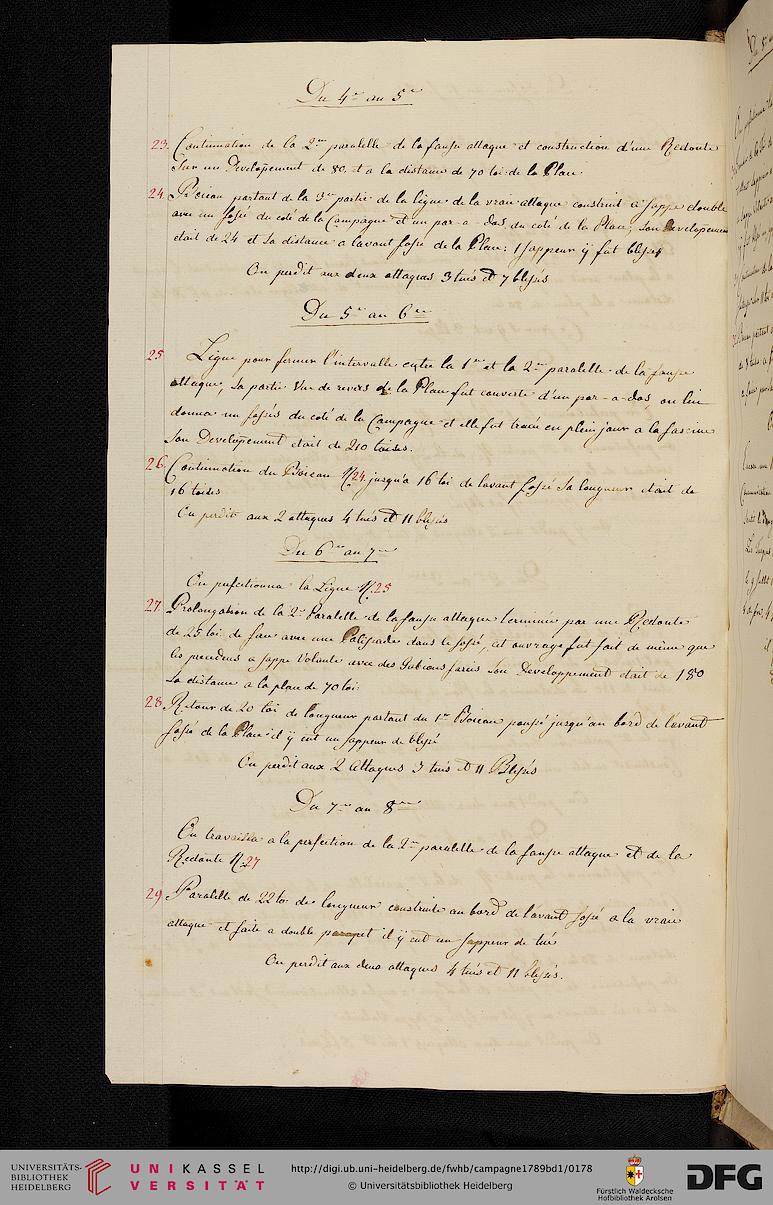 Du 4me au 5me
23. Continuation de la 2me paralelle de la fausse attaque et construction d'une Redoute
Sur un Developement de 80. et a la distance de 70 toi: de la Place
24. Boieau partant de la 3me partie de la ligne de la vraie attaque construit à sappe double
avec un fossé du coté de la Campagne et un par-a-dos du coté de la Place; son Developement
etait de 24 et sa distance a lavant fossé de la Place: 1 sappeur ÿ fut blessé
On perdit aux deux attaques 3 tués et 7 blessés
Du 5me au 6me
25 Ligne pour fermer l'intervalle entre la 1re et la 2me paralelle de la fausse
attaque, sa partie Vue de revers de la Place fut couverte d'un par-a-dos, on lui
donna un fossés du coté de la Campagne et elle fut tracée en plein jour a la fascine
Son Developement etait de 210 toises.
26. Continuation du Boieau N.24 jusqu'a 16 toi de lavant fossé Sa longueur etait de
16 toises
On perdit aux 2 attaques 4 tués et 11 blessés
Du 6me au 7me
On perfectionna la Ligne N.25
27. Prolongation de la 2e Paralelle de la fausse attaque terminée par une Redoute
de 25 toi: de face avec une Palissade dans le fossé, cet ouvrage fut fait de même que
les precedens a sappe Volante avec des Gabions farcis Son Developpement etait de 180
la distance a la place de 70 toi:
28. Retour de 20 toi de longueur partant du 1er Boieau poussé jusqu'au bord de l'avant
fossé de la Place il ÿ eut un sappeur de blessé
On perdit aux 2 Attaques 3 tués et 11 Blessés
Du 7me au 8me
On travailla a la perfection de la 2me paralelle de la fausse attaque et de la
Redoute N.27
29. Paralelle de 22 to: de longueur construite au bord de lavant fossé a la vraie
attaque et faite a double parapet il ÿ eut un sappeur de tué
On perdit aux deux attaques 4 tués et 11 blessés.
UNIVERSITÄTS-
BIBLIOTHEK
HEIDELBERG
UNIKASSEL
VERSITÄT
http://digi.ub.uni-heidelberg.de/fwhb/campagne1789bd1/0178
© Universitätsbibliothek Heidelberg
Fürstlich Waldecksche
Hofbibliothek Arolsen
DFG